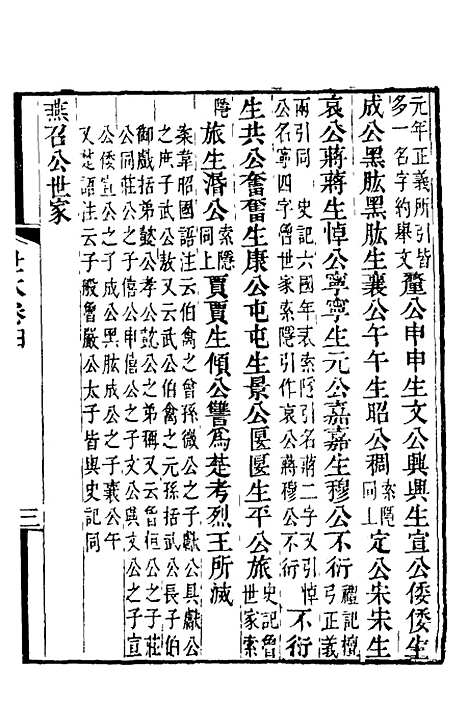 元年正義所引皆
多一名字約舉文
釐公申申生文公興興生宣公倭倭生
成公黑肱黑肱生襄公午午生昭公稠
索隱
同上
定公宋宋生
哀公蔣蔣生悼公寧寧生元公嘉嘉生穆公不衍
禮記檀
弓正義
兩引同 史記六國年表索隱引名蔣二字又引悼
公名寧四字魯世家索隱引作哀公蔣穆公不衍
不衍
生共公奮奮生康公屯屯生景公匽匽生平公旅
史記魯
世家索
隱
旅生湣公
索隱
同上
賈賈生傾公讐為楚考烈王所滅
案韋昭國語注云伯禽之曾孫微公之子獻公具獻公
之庶子武公敖又云武公伯禽之元孫括武公長子伯
御戲括弟懿公孝公懿公之弟稱又云魯桓公公之子莊
公同莊公之子僖公申僖公之子文公興文公之子宣
公倭宣公之子成公黑肱成公之子襄公午
又楚語注云子般魯嚴公太子皆與史記同
燕召公世家
世本卷四
三